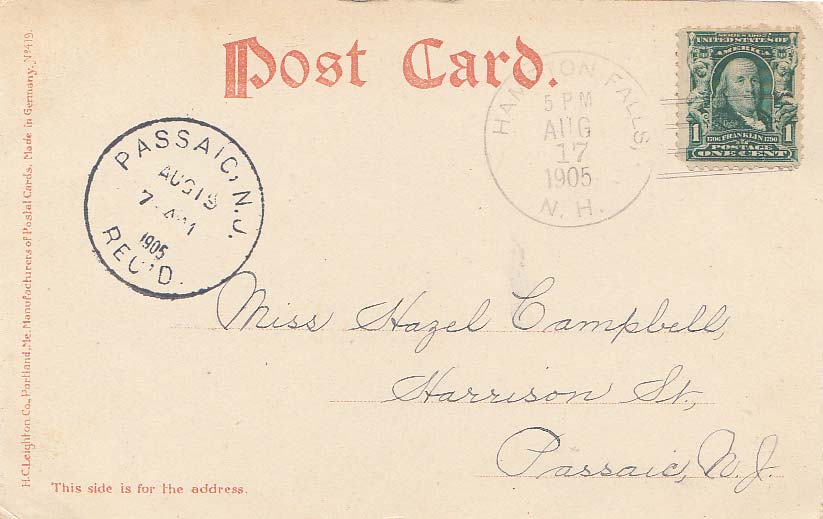 Post Card.
SERIES 1902
UNITED STATES OF
AMERICA
1 1706 FRANKLIN 1790 1
POSTAGE
ONE CENT
HAMPTON FALLS,
5 PM
AUG
17
1905
N. H.
PASSAIC, N.J.
AUG 19
7 AM
1905
REC'D.
Miss Hazel Campbell,
Harrison St.,
Passaic, N. J.
This side is for the address.
H.C. Leighton Co., Portland, Me. Manufacturers of Postal Cards. Made in Germany. No 419.